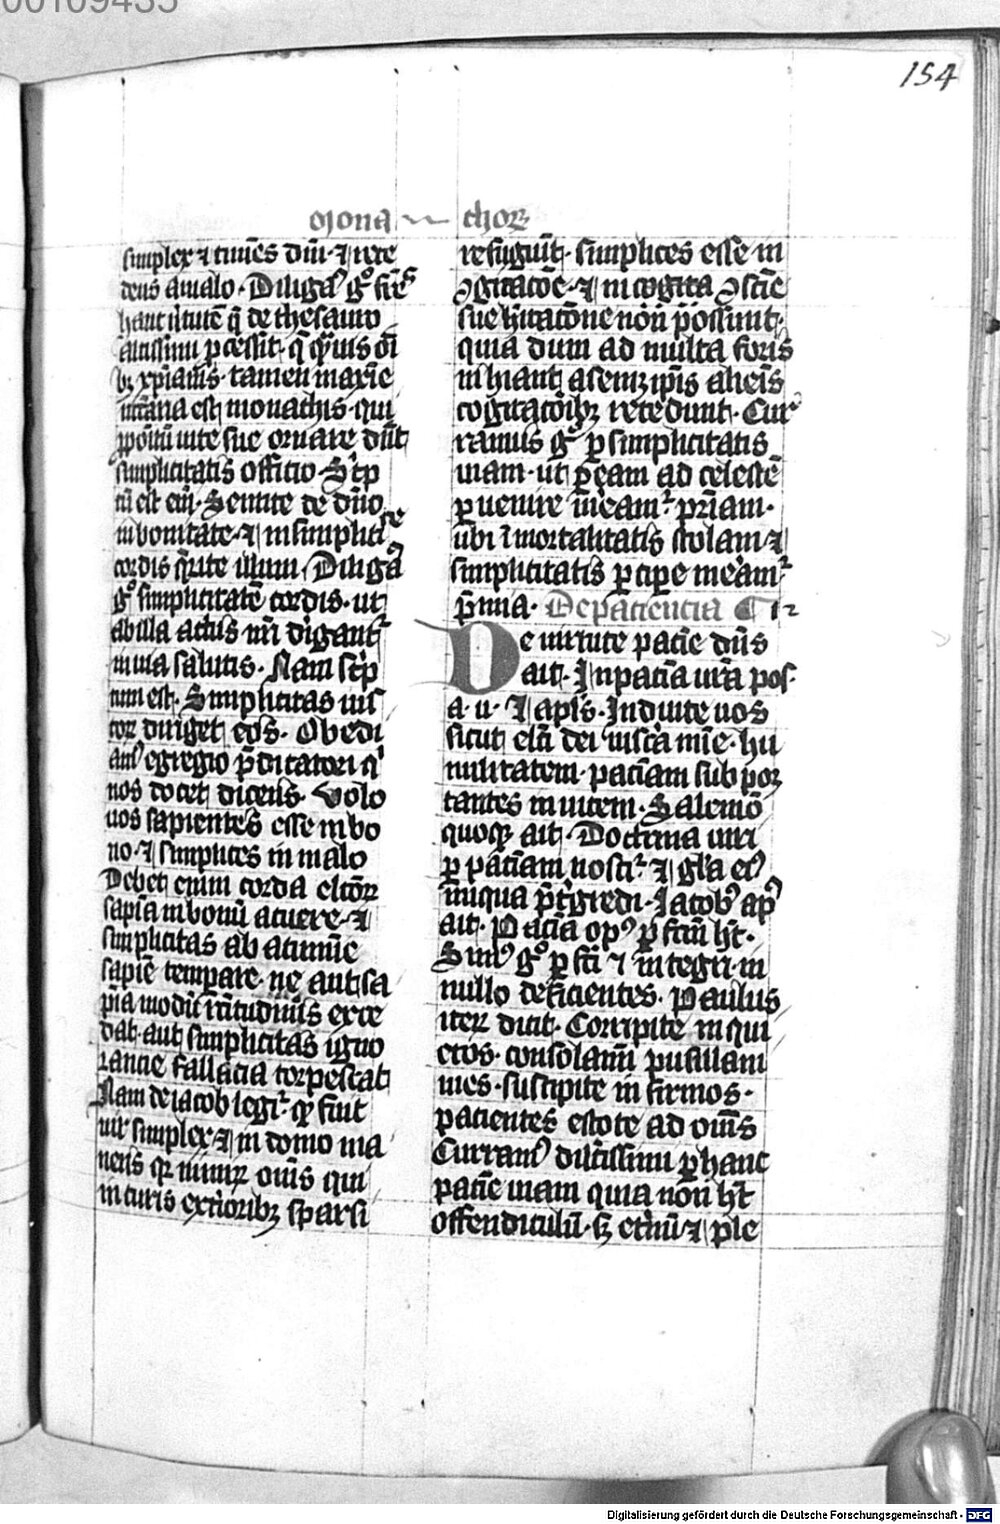 00109435
154
Mona chor
simplex ⁊ timēs dm̄·⁊ rece
dens a malo·Diligam᷒ g° fr̄es
hanc ūtutē q̄ de thesauro
altissimi ꝓcessit·q̄ qͣuis oī
bꝫ xp̄ianis·tamen maxīe
nccāria est monachis·qui
ꝓpoitū uite sue ornare dn̄t
simplicitatis officio·Sc̄p
tū est eī·Sentite de dn̄o
in bonitate·⁊ in simplicitate
cordis q̄rite illum·Diligam᷒
g° simplicitatē cordis·ut
ab illa actus nr̄i dirigant᷑
in uia salutis·Nam sc̄p
tum est·Simplicitas ius
toꝝ diriget eos·Obedi
am᷒ egregio p̄dicatori q̇
nos docet dicens·Volo
uos sapientes esse in bo
no·⁊ simplices in malo
Debet enim corda elcōꝝ
sapīa in bonū acuere·⁊
simplicitas ab acumīe
sapīe tempare·ne aut sa
pīa modū rc̄itudinis exce
dat·aut simplicitas igno
rancie fallacia torpescat
Nam de iacob legi᷑·ꝙ fuit
uir simplex·⁊ in domo ma
nens
in curis ext̓ioribꝫ sparsi
refugiūt·simplices esse in
ꝯgitacōe·⁊ in cogita ꝯscīe
sue hītacōne non possunt·
quia dum ad multa foris
inhiant a semꝫ ip̄is alienis
cogitacōibꝫ recedunt·Cur
ramus g° ꝑ simplicitatis
uiam·ut ꝑ eam ad celestē
ꝑuenire meam᷑ pr̄iam·
ubi īmortalitatis stolam ⁊
simplicitatis ꝑcipe meam᷑
p̄mia·De paciencia
De uirtute pacīe dn̄s
ait·In pacīa ur̄a pos·
a·u·⁊ apl̄s·Induite uos
sicut elc̄i dei uiscͣa mīe·hu
militatem·pacīam subpor
tantes in uicem·Salemō
quoqꝫ ait·Doctrina uiri
ꝑ pacīam nosci᷑·⁊ gl̄a ei᷒
īniqua p̄t̓gredi·Iacob᷒ ap᷒
ait·Pacīa op᷒ ꝑfc̄m h̄t·
Sim᷒ g° ꝑfc̄i ⁊ integri in
nullo deficientes·Paulus
iteꝝ dicit·Corripite inqui
etos·consolamī pusillani
mes·suscipite infirmos·
pacientes estote ad omīs
Curram᷒ dilc̄issimi ꝑ hanc
pacīe uiam quia non h̄t
offendiculū·sꝫ et̓nū ⁊ ple
Digitalisierung gefördert durch die Deutsche Forschungsgemeinschaft - DFG